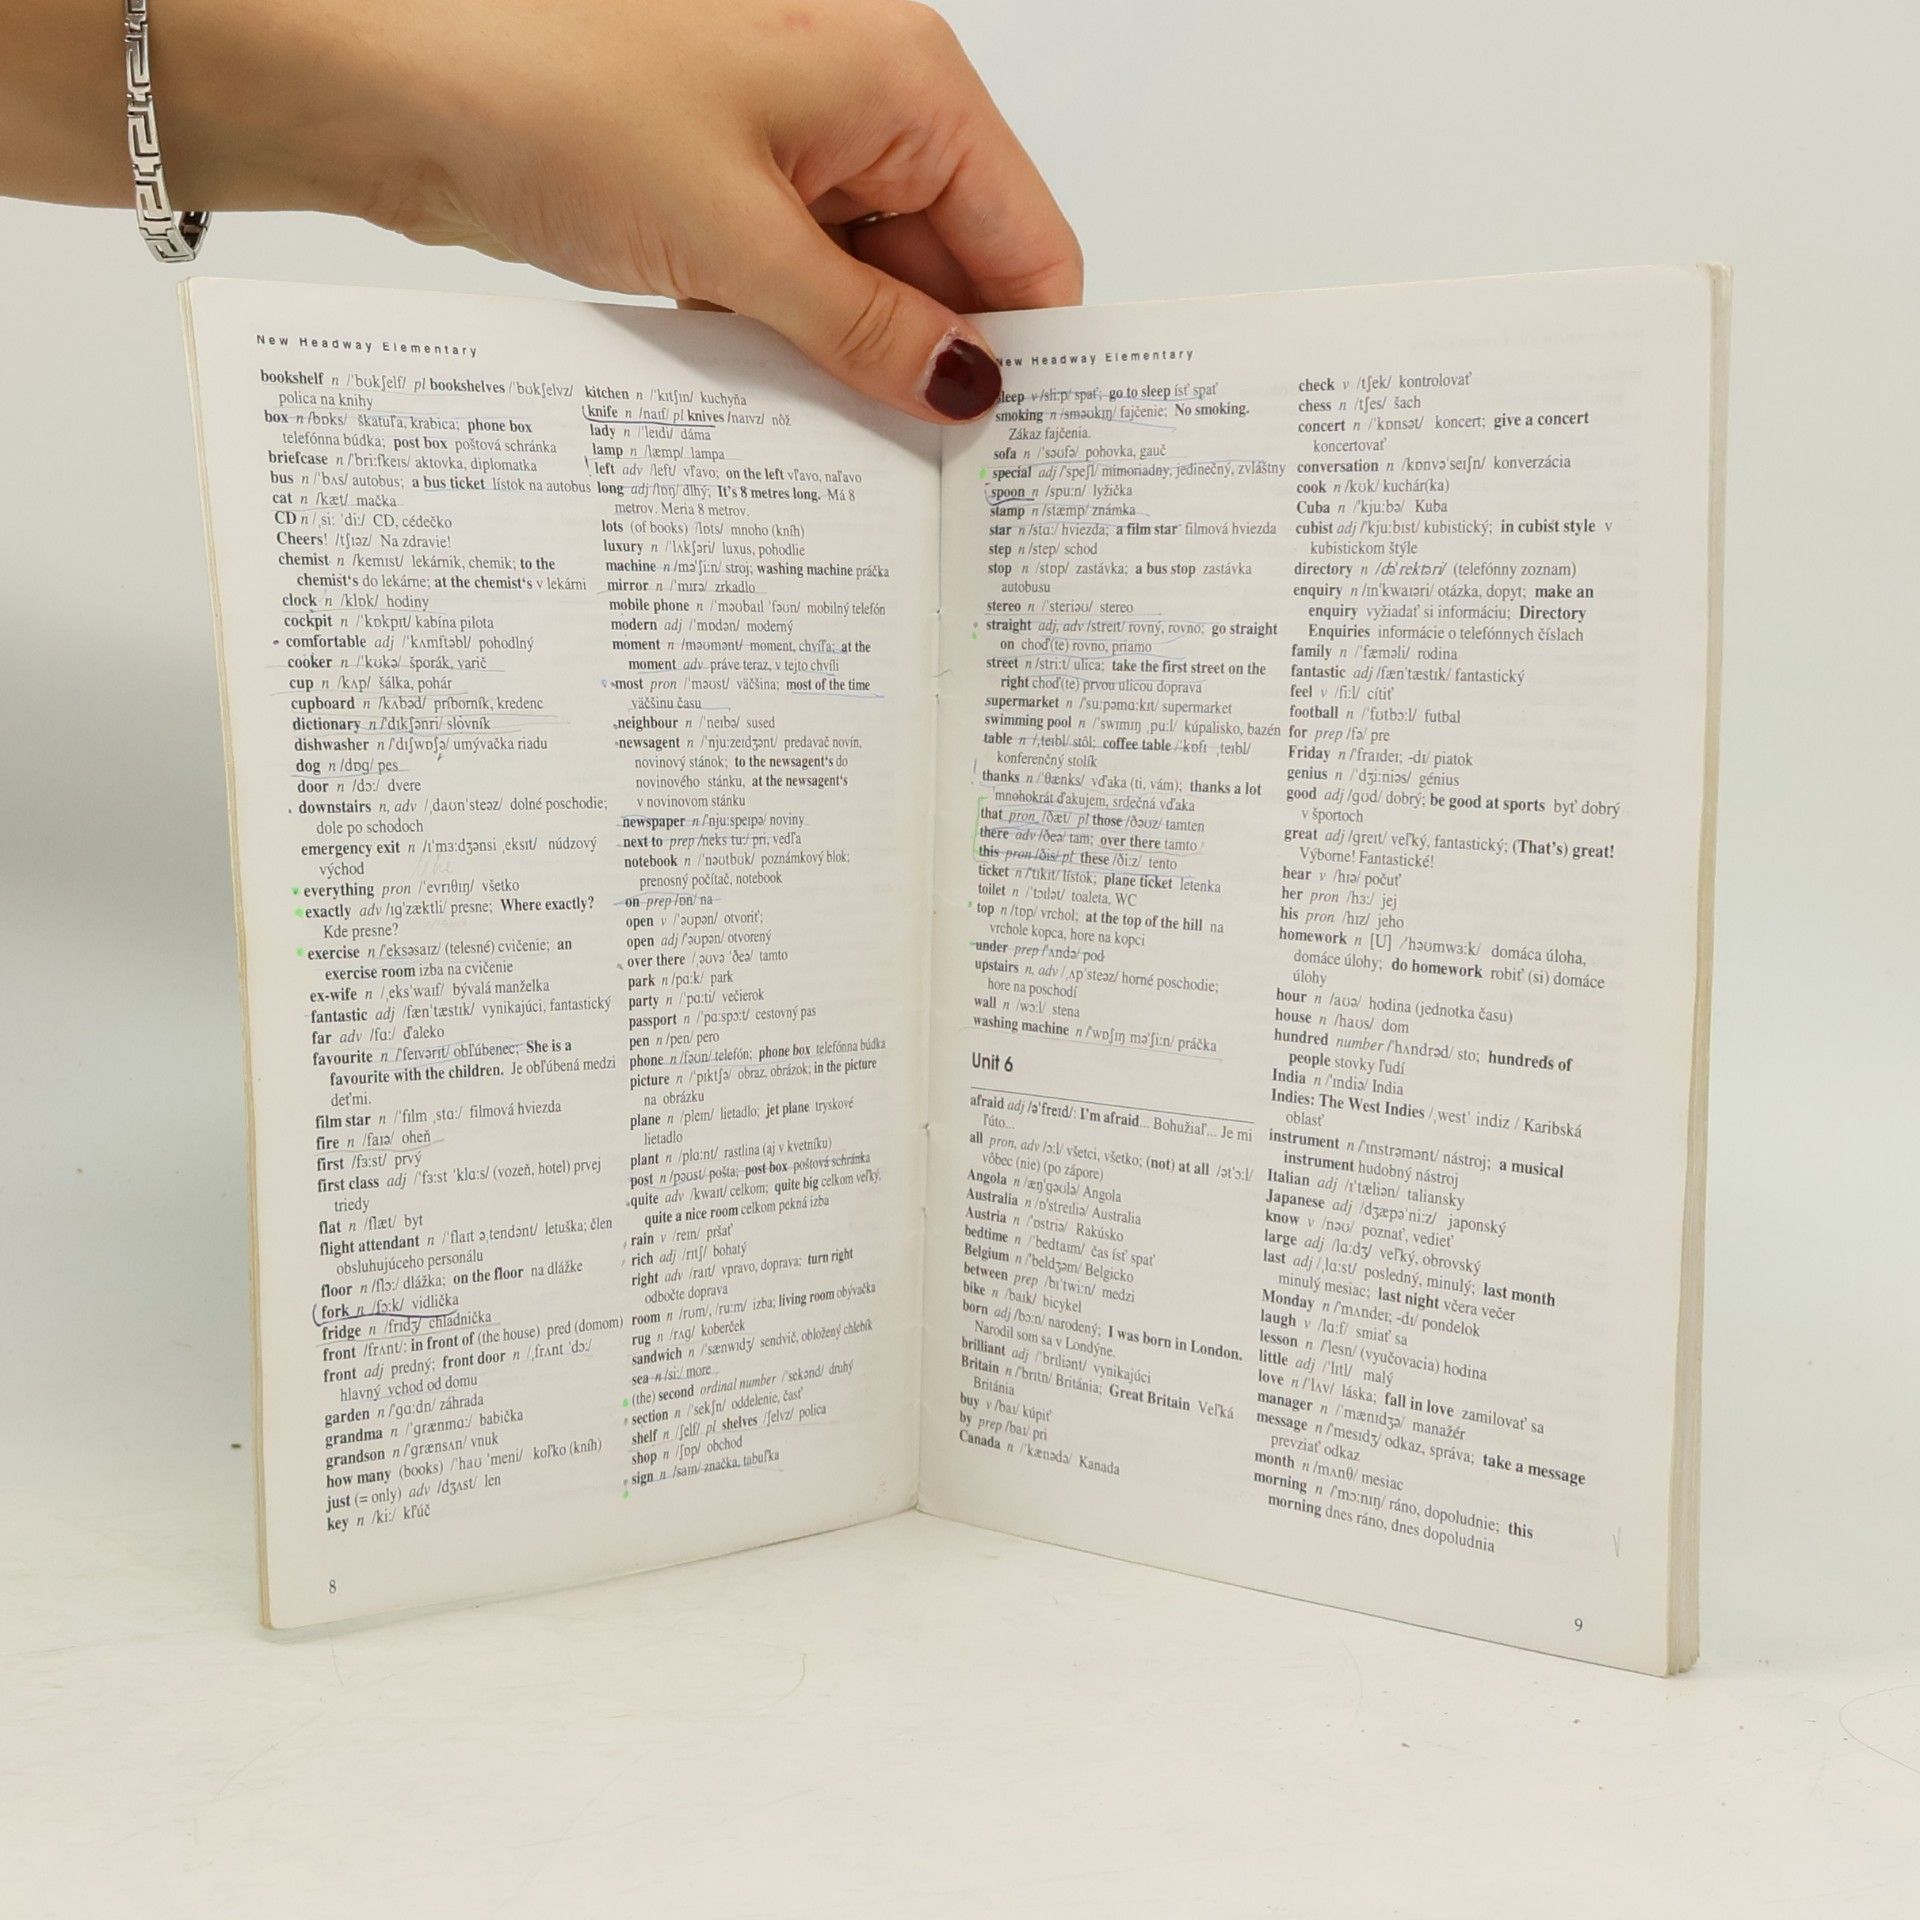 New Headway Elementary
bookshelf n /ˈbʊkʃelf/ pl bookshelves /ˈbʊkʃelvz/
polica na knihy
box n /bɒks/ škatuľa, krabica; phone box
telefónna búdka; post box poštová schránka
briefcase n /ˈbriːfkeɪs/ aktovka, diplomatka
bus n /ˈbʌs/ autobus; a bus ticket lístok na autobus
cat n /kæt/ mačka
CD n /ˌsiː ˈdiː/ CD, cédečko
Cheers! /tʃɪəz/ Na zdravie!
chemist n /kemɪst/ lekárnik, chemik; to the
chemist's do lekárne; at the chemist's v lekárni
clock n /klɒk/ hodiny
cockpit n /ˈkɒkpɪt/ kabína pilota
comfortable adj /ˈkʌmftəbl/ pohodlný
cooker n /ˈkʊkə/ šporák, varič
cup n /kʌp/ šálka, pohár
cupboard n /kʌbəd/ príborník, kredenc
dictionary n /ˈdɪkʃənri/ slovník
dishwasher n /ˈdɪʃwɒʃə/ umývačka riadu
dog n /dɒg/ pes
door n /dɔː/ dvere
downstairs n, adv /ˌdaʊnˈsteəz/ dolné poschodie;
dole po schodoch
emergency exit n /ɪˈmɜːdʒənsi ˌeksɪt/ núdzový
východ
everything pron /ˈevrɪθɪŋ/ všetko
exactly adv /ɪgˈzæktli/ presne; Where exactly?
Kde presne?
exercise n /ˈeksəsaɪz/ (telesné) cvičenie; an
exercise room izba na cvičenie
ex-wife n /ˌeksˈwaɪf/ bývalá manželka
fantastic adj /fænˈtæstɪk/ vynikajúci, fantastický
far adv /fɑː/ ďaleko
favourite n /ˈfeɪvərɪt/ obľúbenec; She is a
favourite with the children. Je obľúbená medzi
deťmi.
film star n /ˈfɪlm ˌstɑː/ filmová hviezda
fire n /faɪə/ oheň
first /fɜːst/ prvý
first class adj /ˈfɜːst ˈklɑːs/ (vozeň, hotel) prvej
triedy
flat n /flæt/ byt
flight attendant n /ˈflaɪt əˌtendənt/ letuška; člen
obsluhujúceho personálu
floor n /flɔː/ dlážka; on the floor na dlážke
fork n /fɔːk/ vidlička
fridge n /frɪdʒ/ chladnička
front /frʌnt/: in front of (the house) pred (domom)
front adj predný; front door n /ˌfrʌnt ˈdɔː/
hlavný vchod od domu
garden n /ˈgɑːdn/ záhrada
grandma n /ˈgrænmɑː/ babička
grandson n /ˈgrænsʌn/ vnuk
how many (books) /ˈhaʊ ˈmeni/ koľko (kníh)
just (= only) adv /dʒʌst/ len
key n /kiː/ kľúč
8
kitchen n /ˈkɪtʃɪn/ kuchyňa
knife n /naɪf/ pl knives /naɪvz/ nôž
lady n /ˈleɪdi/ dáma
lamp n /læmp/ lampa
left adv /left/ vľavo; on the left vľavo, naľavo
long adj /lɒŋ/ dlhý; It's 8 metres long. Má 8
metrov. Meria 8 metrov.
lots (of books) /lɒts/ mnoho (kníh)
luxury n /ˈlʌkʃəri/ luxus, pohodlie
machine n /məˈʃiːn/ stroj; washing machine práčka
mirror n /ˈmɪrə/ zrkadlo
mobile phone n /ˈməʊbaɪl ˈfəʊn/ mobilný telefón
modern adj /ˈmɒdən/ moderný
moment n /məʊmənt/ moment, chvíľa; at the
moment adv práve teraz, v tejto chvíli
most pron /ˈməʊst/ väčšina; most of the time
väčšinu času
neighbour n /ˈneɪbə/ sused
newsagent n /ˈnjuːzeɪdʒənt/ predavač novín,
novinový stánok; to the newsagent's do
novinového stánku, at the newsagent's
v novinovom stánku
newspaper n /ˈnjuːspeɪpə/ noviny
next to prep /neks tuː/ pri, vedľa
notebook n /ˈnəʊtbʊk/ poznámkový blok;
prenosný počítač, notebook
on prep /ɒn/ na
open v /ˈəʊpən/ otvoriť;
open adj /ˈəʊpən/ otvorený
over there /ˌəʊvə ˈðeə/ tamto
park n /pɑːk/ park
party n /ˈpɑːti/ večierok
passport n /ˈpɑːspɔːt/ cestovný pas
pen n /pen/ pero
phone n /fəʊn/ telefón; phone box telefónna búdka
picture n /ˈpɪktʃə/ obraz, obrázok; in the picture
na obrázku
plane n /pleɪn/ lietadlo; jet plane tryskové
lietadlo
plant n /plɑːnt/ rastlina (aj v kvetníku)
post n /pəʊst/ pošta; post box poštová schránka
quite adv /kwaɪt/ celkom; quite big celkom veľký,
quite a nice room celkom pekná izba
rain v /reɪn/ pršať
rich adj /rɪtʃ/ bohatý
right adv /raɪt/ vpravo, doprava; turn right
odbočte doprava
room n /rʊm/, /ruːm/ izba; living room obývačka
rug n /rʌg/ koberček
sandwich n /ˈsænwɪdʒ/ sendvič, obložený chlebík
sea n /siː/ more
(the) second ordinal number /ˈsekənd/ druhý
section n /ˈsekʃn/ oddelenie, časť
shelf n /ʃelf/ pl shelves /ʃelvz/ polica
shop n /ʃɒp/ obchod
sign n /saɪn/ značka, tabuľka
New Headway Elementary
sleep v /sliːp/ spať; go to sleep ísť spať
smoking n /sməʊkɪŋ/ fajčenie; No smoking.
Zákaz fajčenia.
sofa n /ˈsəʊfə/ pohovka, gauč
special adj /ˈspeʃl/ mimoriadny, jedinečný, zvláštny
spoon n /spuːn/ lyžička
stamp n /stæmp/ známka
star n /stɑː/ hviezda; a film star filmová hviezda
step n /step/ schod
stop n /stɒp/ zastávka; a bus stop zastávka
autobusu
stereo n /ˈsteriəʊ/ stereo
straight adj, adv /streɪt/ rovný, rovno; go straight
on choď(te) rovno, priamo
street n /striːt/ ulica; take the first street on the
right choď(te) prvou ulicou doprava
supermarket n /ˈsuːpəmɑːkɪt/ supermarket
swimming pool n /ˈswɪmɪŋ ˌpuːl/ kúpalisko, bazén
table n /ˌteɪbl/ stôl; coffee table /ˈkɒfɪ ˌteɪbl/
konferenčný stolík
thanks n /ˈθæŋks/ vďaka (ti, vám); thanks a lot
mnohokrát ďakujem, srdečná vďaka
that pron /ðæt/ pl those /ðəʊz/ tamten
there adv /ðeə/ tam; over there tamto
this pron /ðɪs/ pl these /ðiːz/ tento
ticket n /ˈtɪkɪt/ lístok; plane ticket letenka
toilet n /ˈtɔɪlət/ toaleta, WC
top n /tɒp/ vrchol; at the top of the hill na
vrchole kopca, hore na kopci
under prep /ˈʌndə/ pod
upstairs n, adv /ˌʌpˈsteəz/ horné poschodie;
hore na poschodí
wall n /wɔːl/ stena
washing machine n /ˈwɒʃɪŋ məˈʃiːn/ práčka
Unit 6
afraid adj /əˈfreɪd/: I'm afraid... Bohužiaľ... Je mi
ľúto...
all pron, adv /ɔːl/ všetci, všetko; (not) at all /ətˈɔːl/
vôbec (nie) (po zápore)
Angola n /æŋˈgəʊlə/ Angola
Australia n /ɒˈstreɪliə/ Australia
Austria n /ˈɒstriə/ Rakúsko
bedtime n /ˈbedtaɪm/ čas ísť spať
Belgium n /ˈbeldʒəm/ Belgicko
between prep /bɪˈtwiːn/ medzi
bike n /baɪk/ bicykel
born adj /bɔːn/ narodený; I was born in London.
Narodil som sa v Londýne.
brilliant adj /ˈbrɪliənt/ vynikajúci
Britain n /ˈbrɪtn/ Británia; Great Britain Veľká
Británia
buy v /baɪ/ kúpiť
by prep /baɪ/ pri
Canada n /ˈkænədə/ Kanada
check v /tʃek/ kontrolovať
chess n /tʃes/ šach
concert n /ˈkɒnsət/ koncert; give a concert
koncertovať
conversation n /kɒnvəˈseɪʃn/ konverzácia
cook n /kʊk/ kuchár(ka)
Cuba n /ˈkjuːbə/ Kuba
cubist adj /ˈkjuːbɪst/ kubistický; in cubist style v
kubistickom štýle
directory n /dəˈrektəri/ (telefónny zoznam)
enquiry n /ɪnˈkwaɪəri/ otázka, dopyt; make an
enquiry vyžiadať si informáciu; Directory
Enquiries informácie o telefónnych číslach
family n /ˈfæməli/ rodina
fantastic adj /fænˈtæstɪk/ fantastický
feel v /fiːl/ cítiť
football n /ˈfʊtbɔːl/ futbal
for prep /fə/ pre
Friday n /ˈfraɪdeɪ; -dɪ/ piatok
genius n /ˈdʒiːniəs/ génius
good adj /gʊd/ dobrý; be good at sports byť dobrý
v športoch
great adj /greɪt/ veľký, fantastický; (That's) great!
Výborne! Fantastické!
hear v /hɪə/ počuť
her pron /hɜː/ jej
his pron /hɪz/ jeho
homework n [U] /ˈhəʊmwɜːk/ domáca úloha,
domáce úlohy; do homework robiť (si) domáce
úlohy
hour n /aʊə/ hodina (jednotka času)
house n /haʊs/ dom
hundred number /ˈhʌndrəd/ sto; hundreds of
people stovky ľudí
India n /ˈɪndiə/ India
Indies: The West Indies /ˌwestˈ indiz / Karibská
oblasť
instrument n /ˈɪnstrəmənt/ nástroj; a musical
instrument hudobný nástroj
Italian adj /ɪˈtæliən/ taliansky
Japanese adj /dʒæpəˈniːz/ japonský
know v /nəʊ/ poznať, vedieť
large adj /lɑːdʒ/ veľký, obrovský
last adj /ˌlɑːst/ posledný, minulý; last month
minulý mesiac; last night včera večer
Monday n /ˈmʌndeɪ; -dɪ/ pondelok
laugh v /lɑːf/ smiať sa
lesson n /ˈlesn/ (vyučovacia) hodina
little adj /ˈlɪtl/ malý
love n /ˈlʌv/ láska; fall in love zamilovať sa
manager n /ˈmænɪdʒə/ manažér
message n /ˈmesɪdʒ/ odkaz, správa; take a message
prevziať odkaz
month n /mʌnθ/ mesiac
morning n /ˈmɔːnɪŋ/ ráno, dopoludnie; this
morning dnes ráno, dnes dopoludnia
9